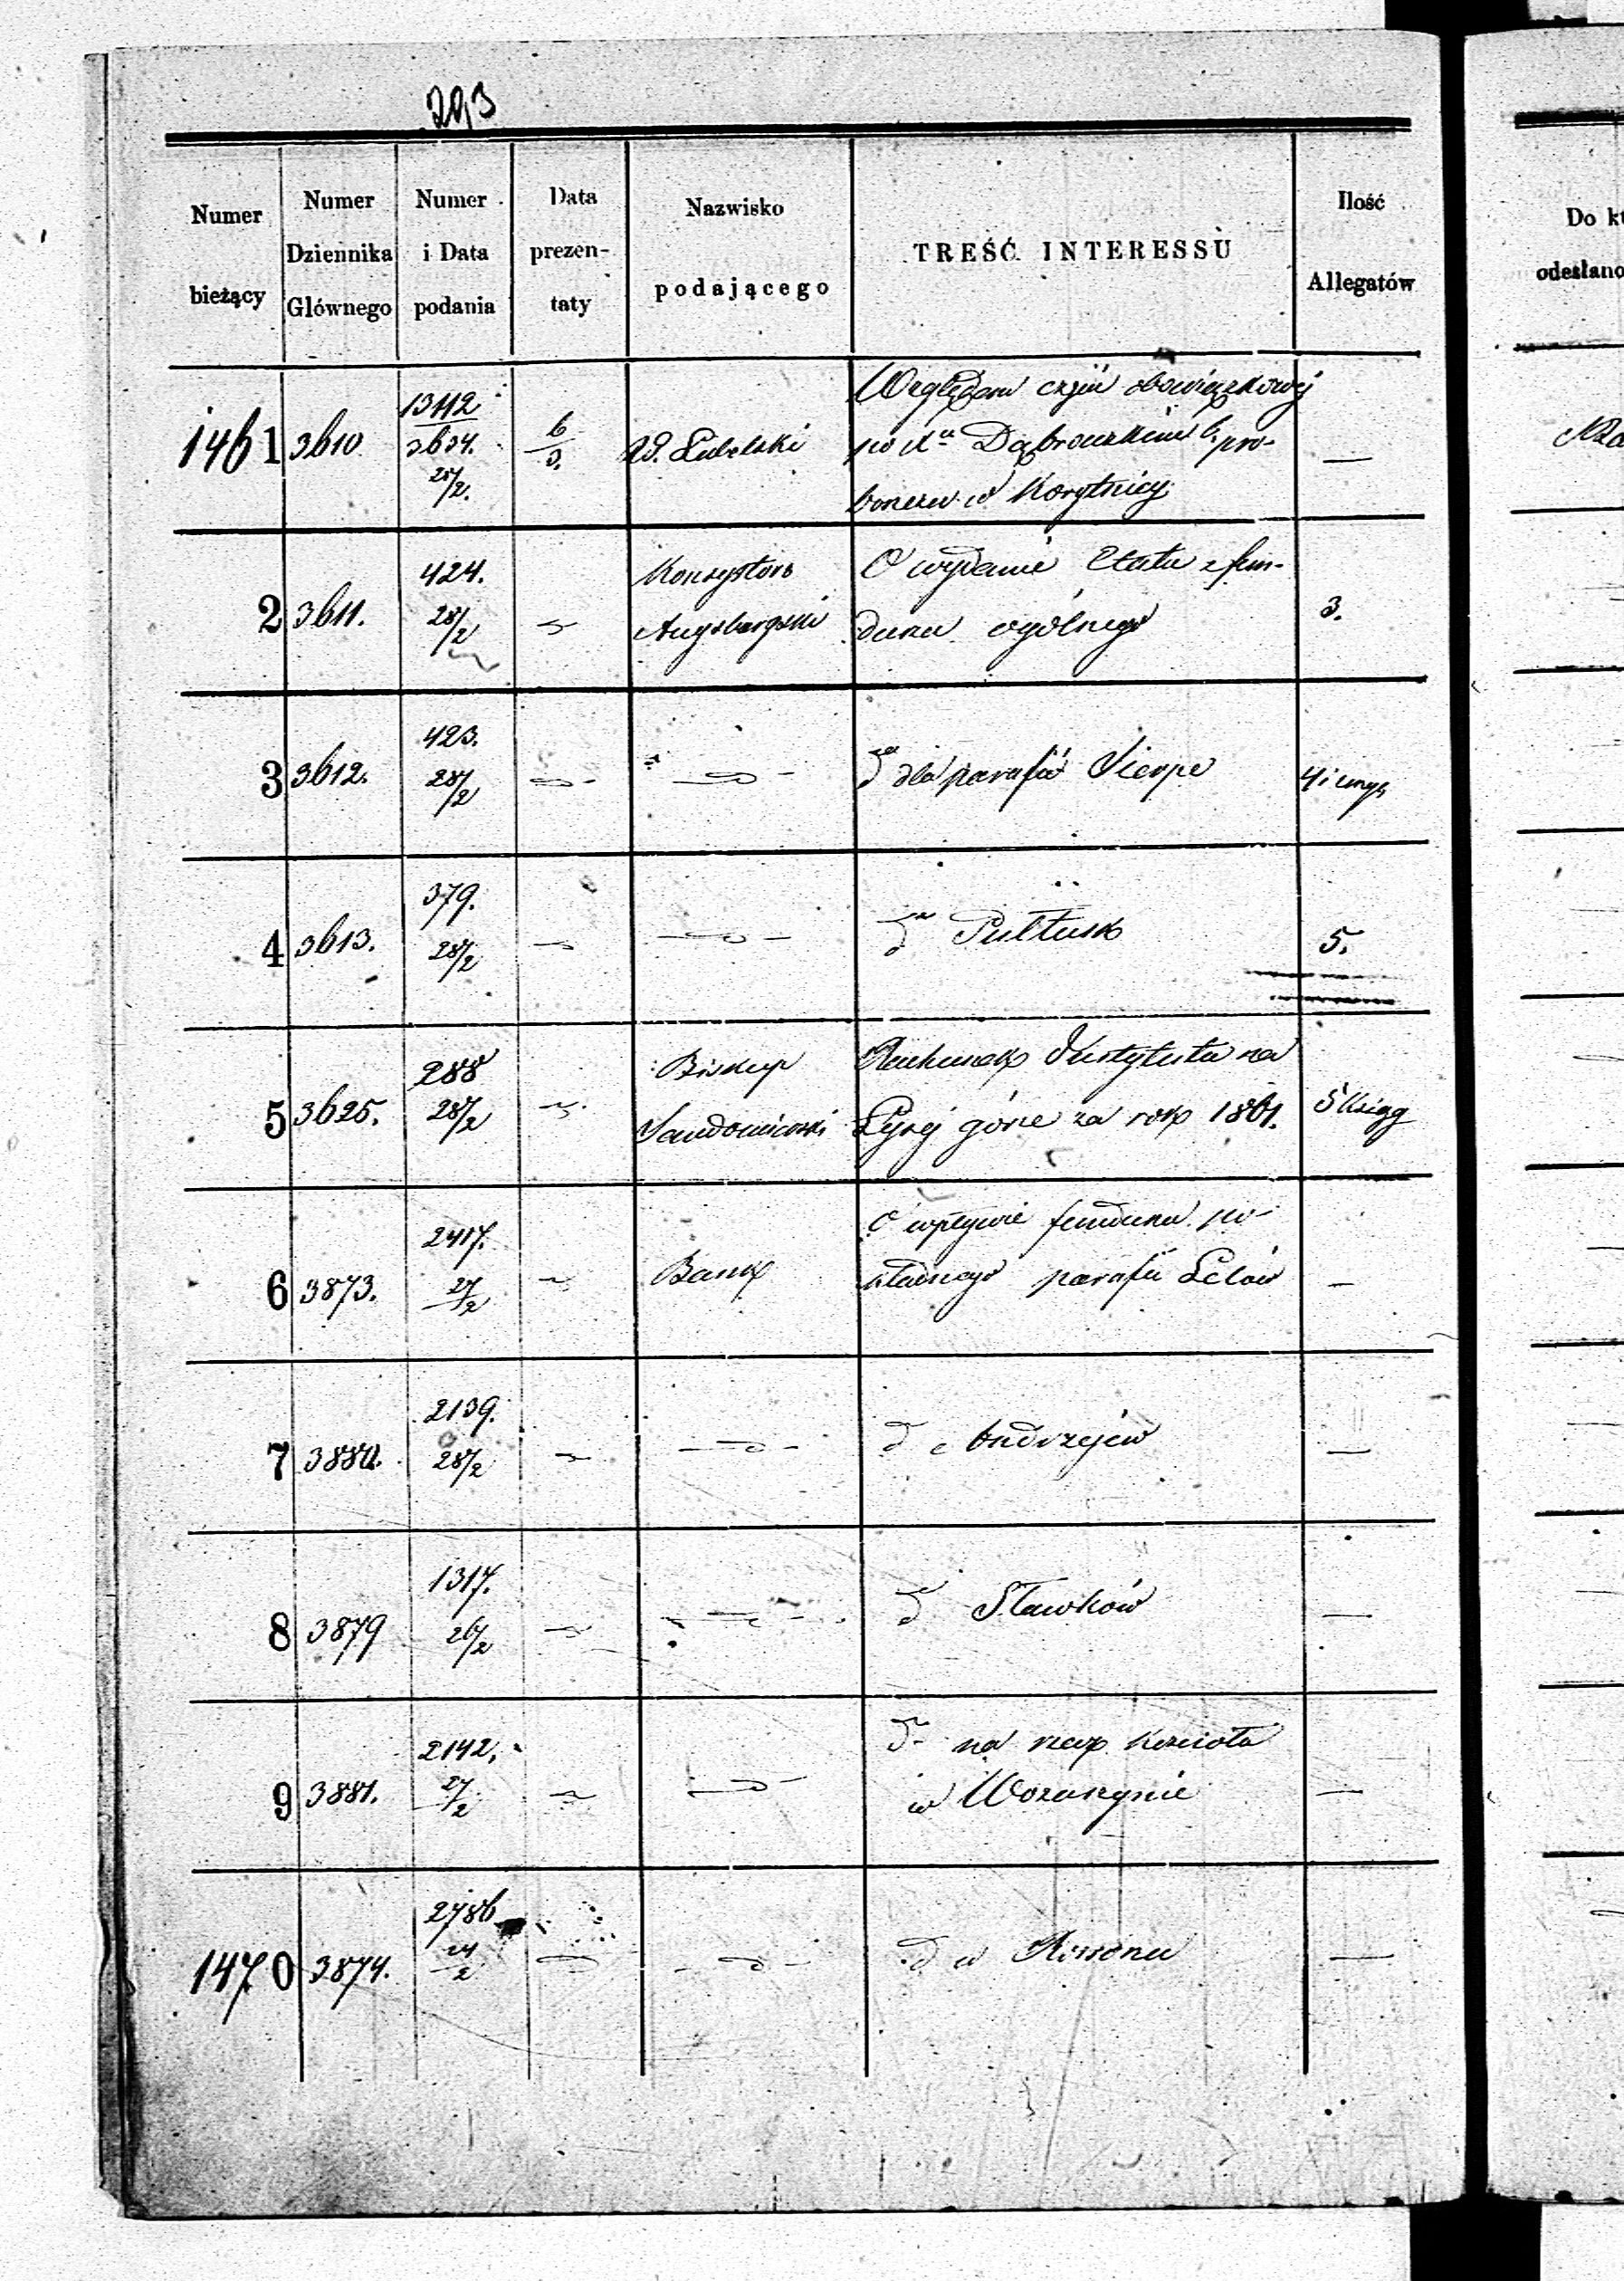 293
Numer bieżący | Numer Dziennika Głównego | Numer i Data podania | Data prezen-taty | Nazwisko podającego | TREŚĆ INTERESSU | Ilość Allegatów
Do
odesłano
1461 | 3610 | 13112 3634. 28/2. | 6/3. | Lubelski | Względem części obowiązkowej
po Dąbrowskim b. pro-
boszczu w Korytnicy | —
2 | 3611. | 424. 28/2 | Konsystorz Augsburgski | O wydanie Etatu z fun-
duszu ogólnego | 3.
3 | 3612. | 423. 28/2 | dla parafii Sierpc | 4 i
4 | 3613. | 379. 28/2 | Pułtusk | 5.
5 | 3625. | 288 28/2 | Biskup Sandomierski | Rachunek Instytutu na
Łysej górze za rok 1861. | 5 Ksiąg
6 | 3873. | 2417. 27/2 | Bank | O wpływie funduszu po-
kładnego parafii Lelów | —
7 | 3880. | 2139. 28/2 | d | —
8 | 3879 | 1317. 26/2 | Sławków | —
9 | 3881. | 2142. 27/2 | na rzecz Kościoła
w Wożuczynie | —
1470 | 3874. | 2786 24/2 | d | d w | —